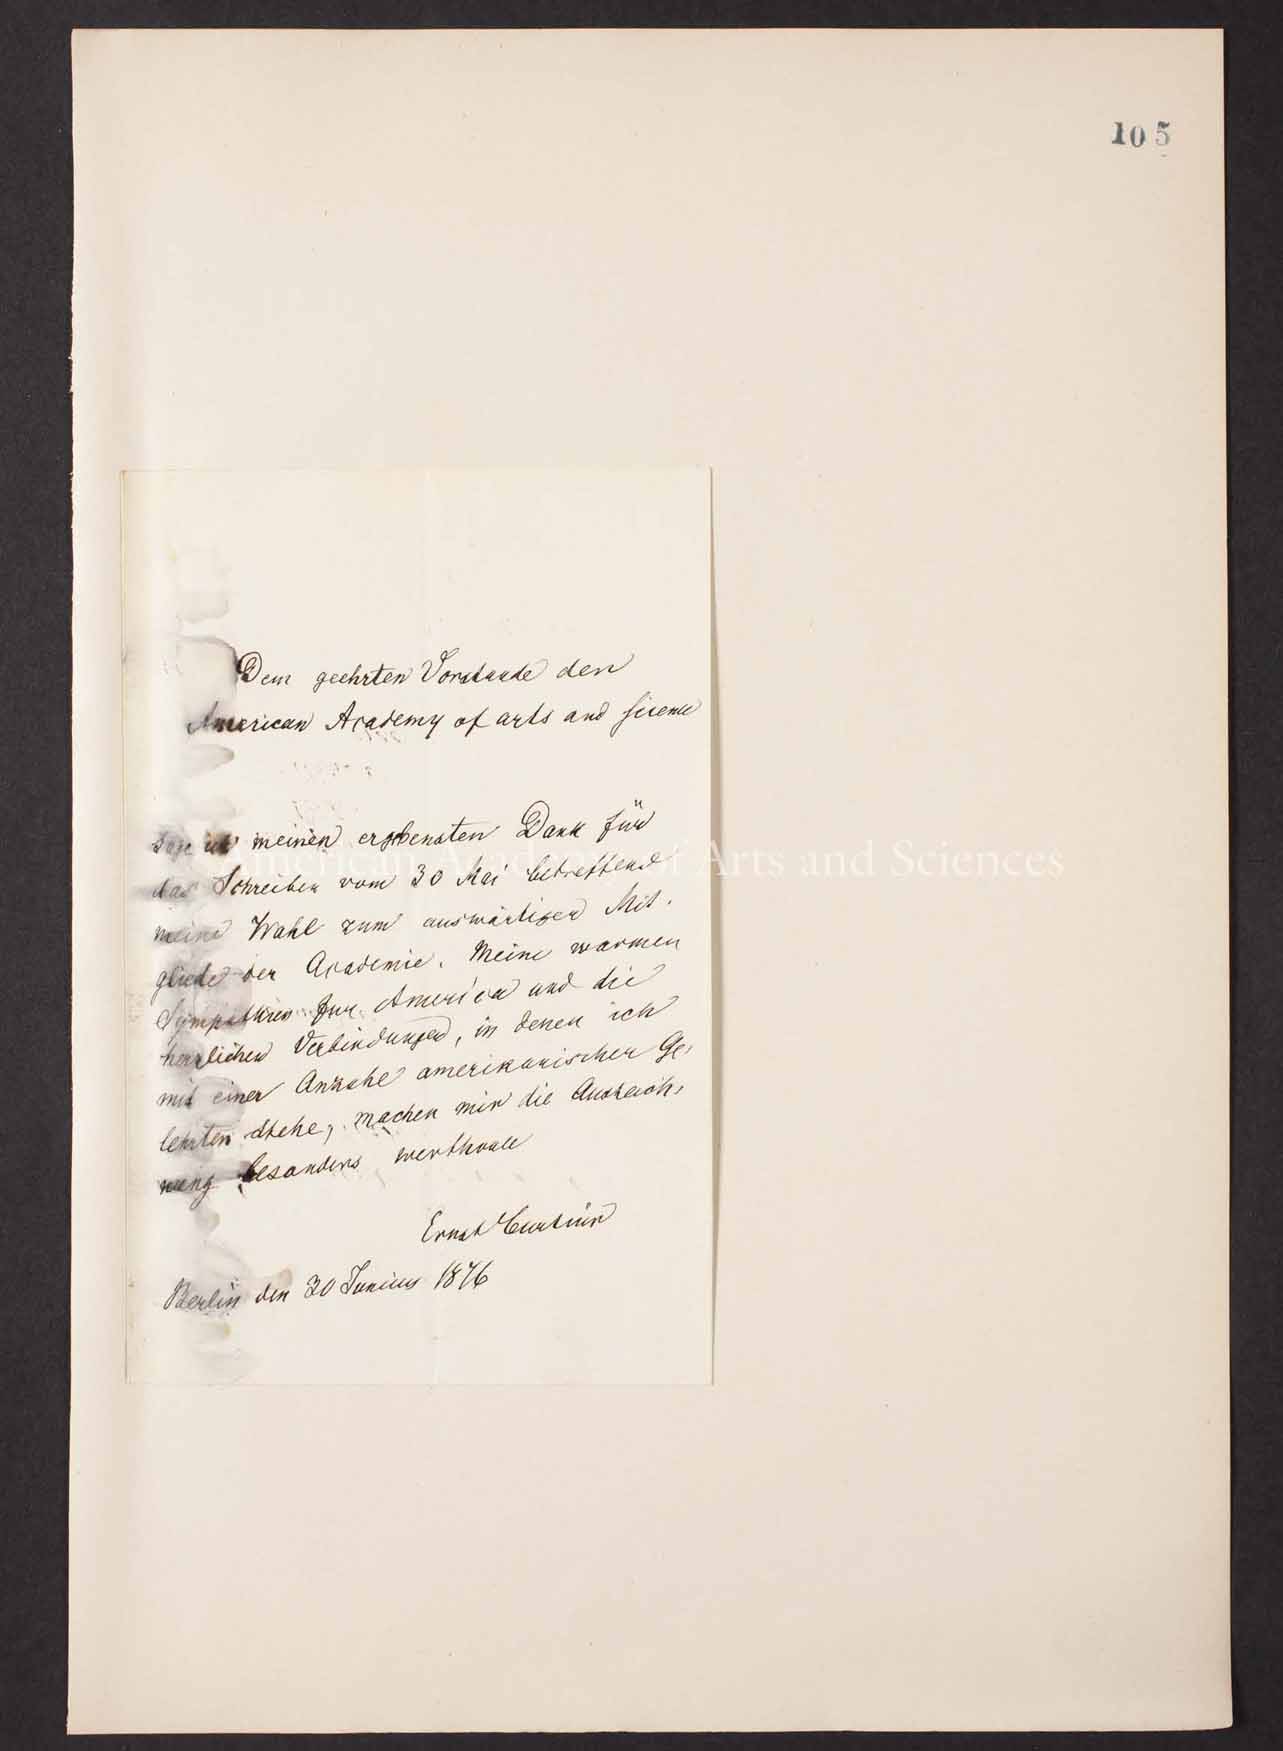 105
Dem geehrten Vorstande der
American Academy of arts and science
sage ich meinen ergebensten Dank für
das Schreiben vom 30 Mai betreffend
meine Wahl zum auswärtigen Mit-
gliede der Academie. Meine warmen
Sympathien für America und die
herzlichen Verbindungen, in denen ich
mit einer Anzahl amerikanischer Ge-
lehrten stehe, machen mir die Auszeich-
nung besonders werthvoll
Ernst Curtius
Berlin den 30 Junius 1876
American Academy of Arts and Sciences